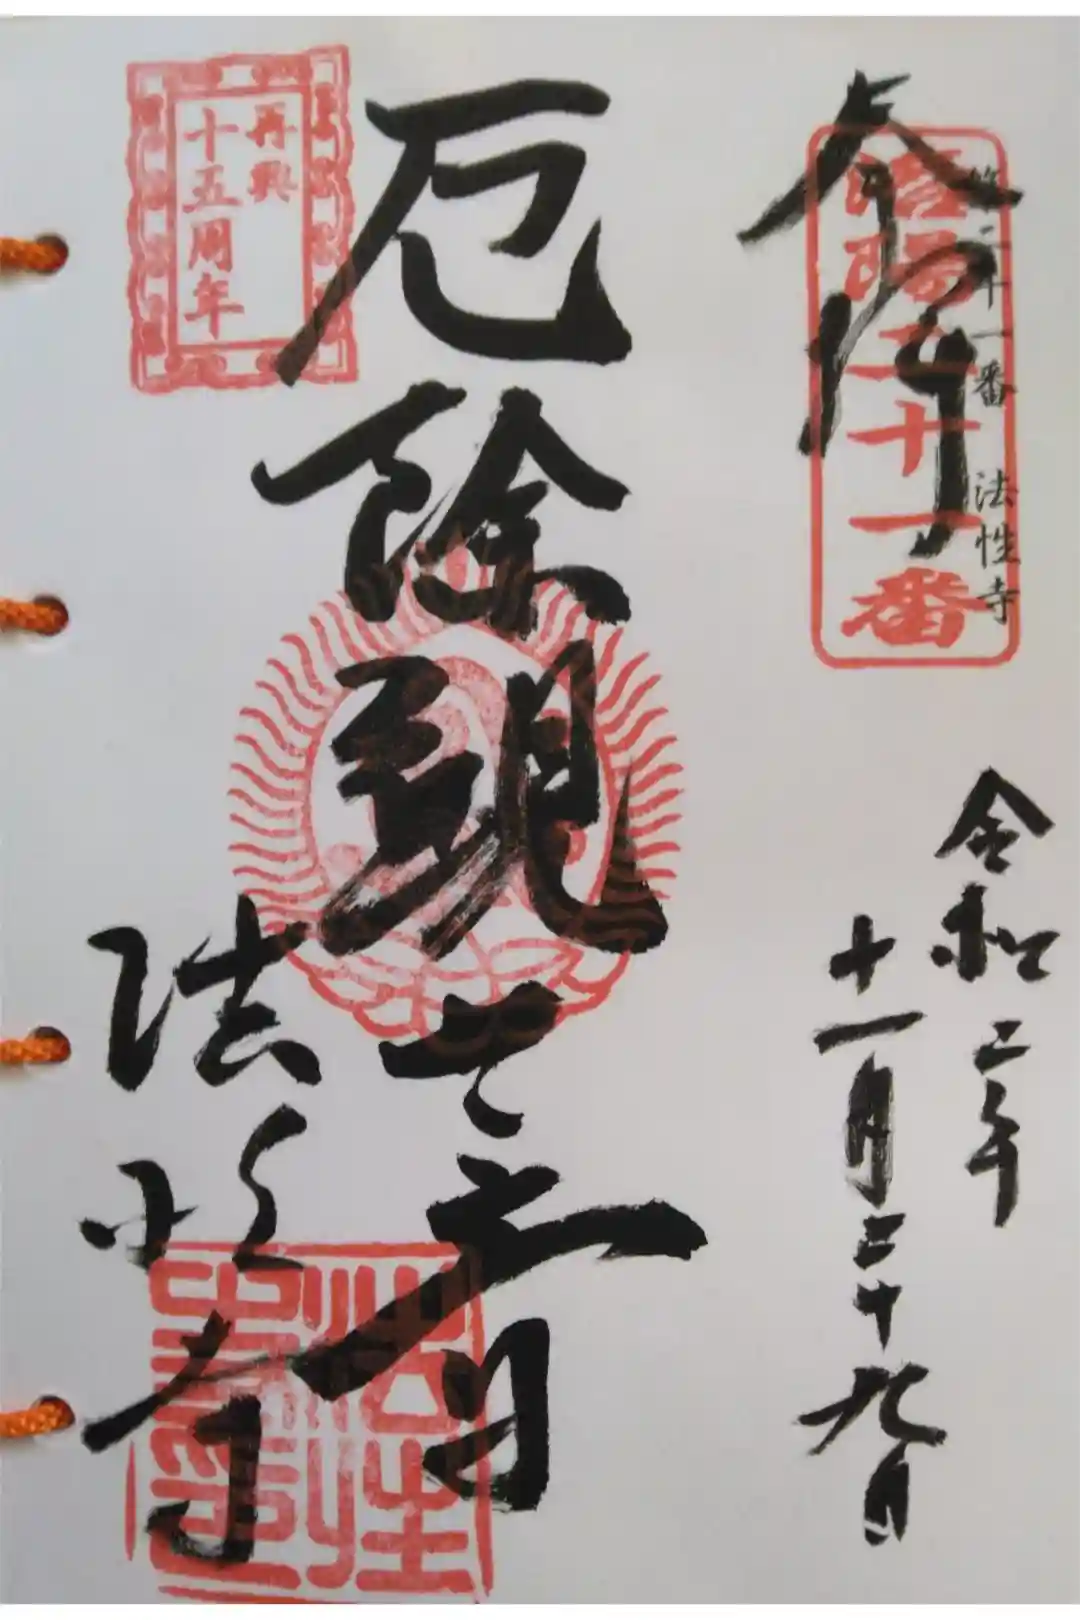 奉拝
第二十一番 法性寺
洛陽二十一番
令和二年
十一月二十九日
厄除観世音
法性寺
再興
十五周年